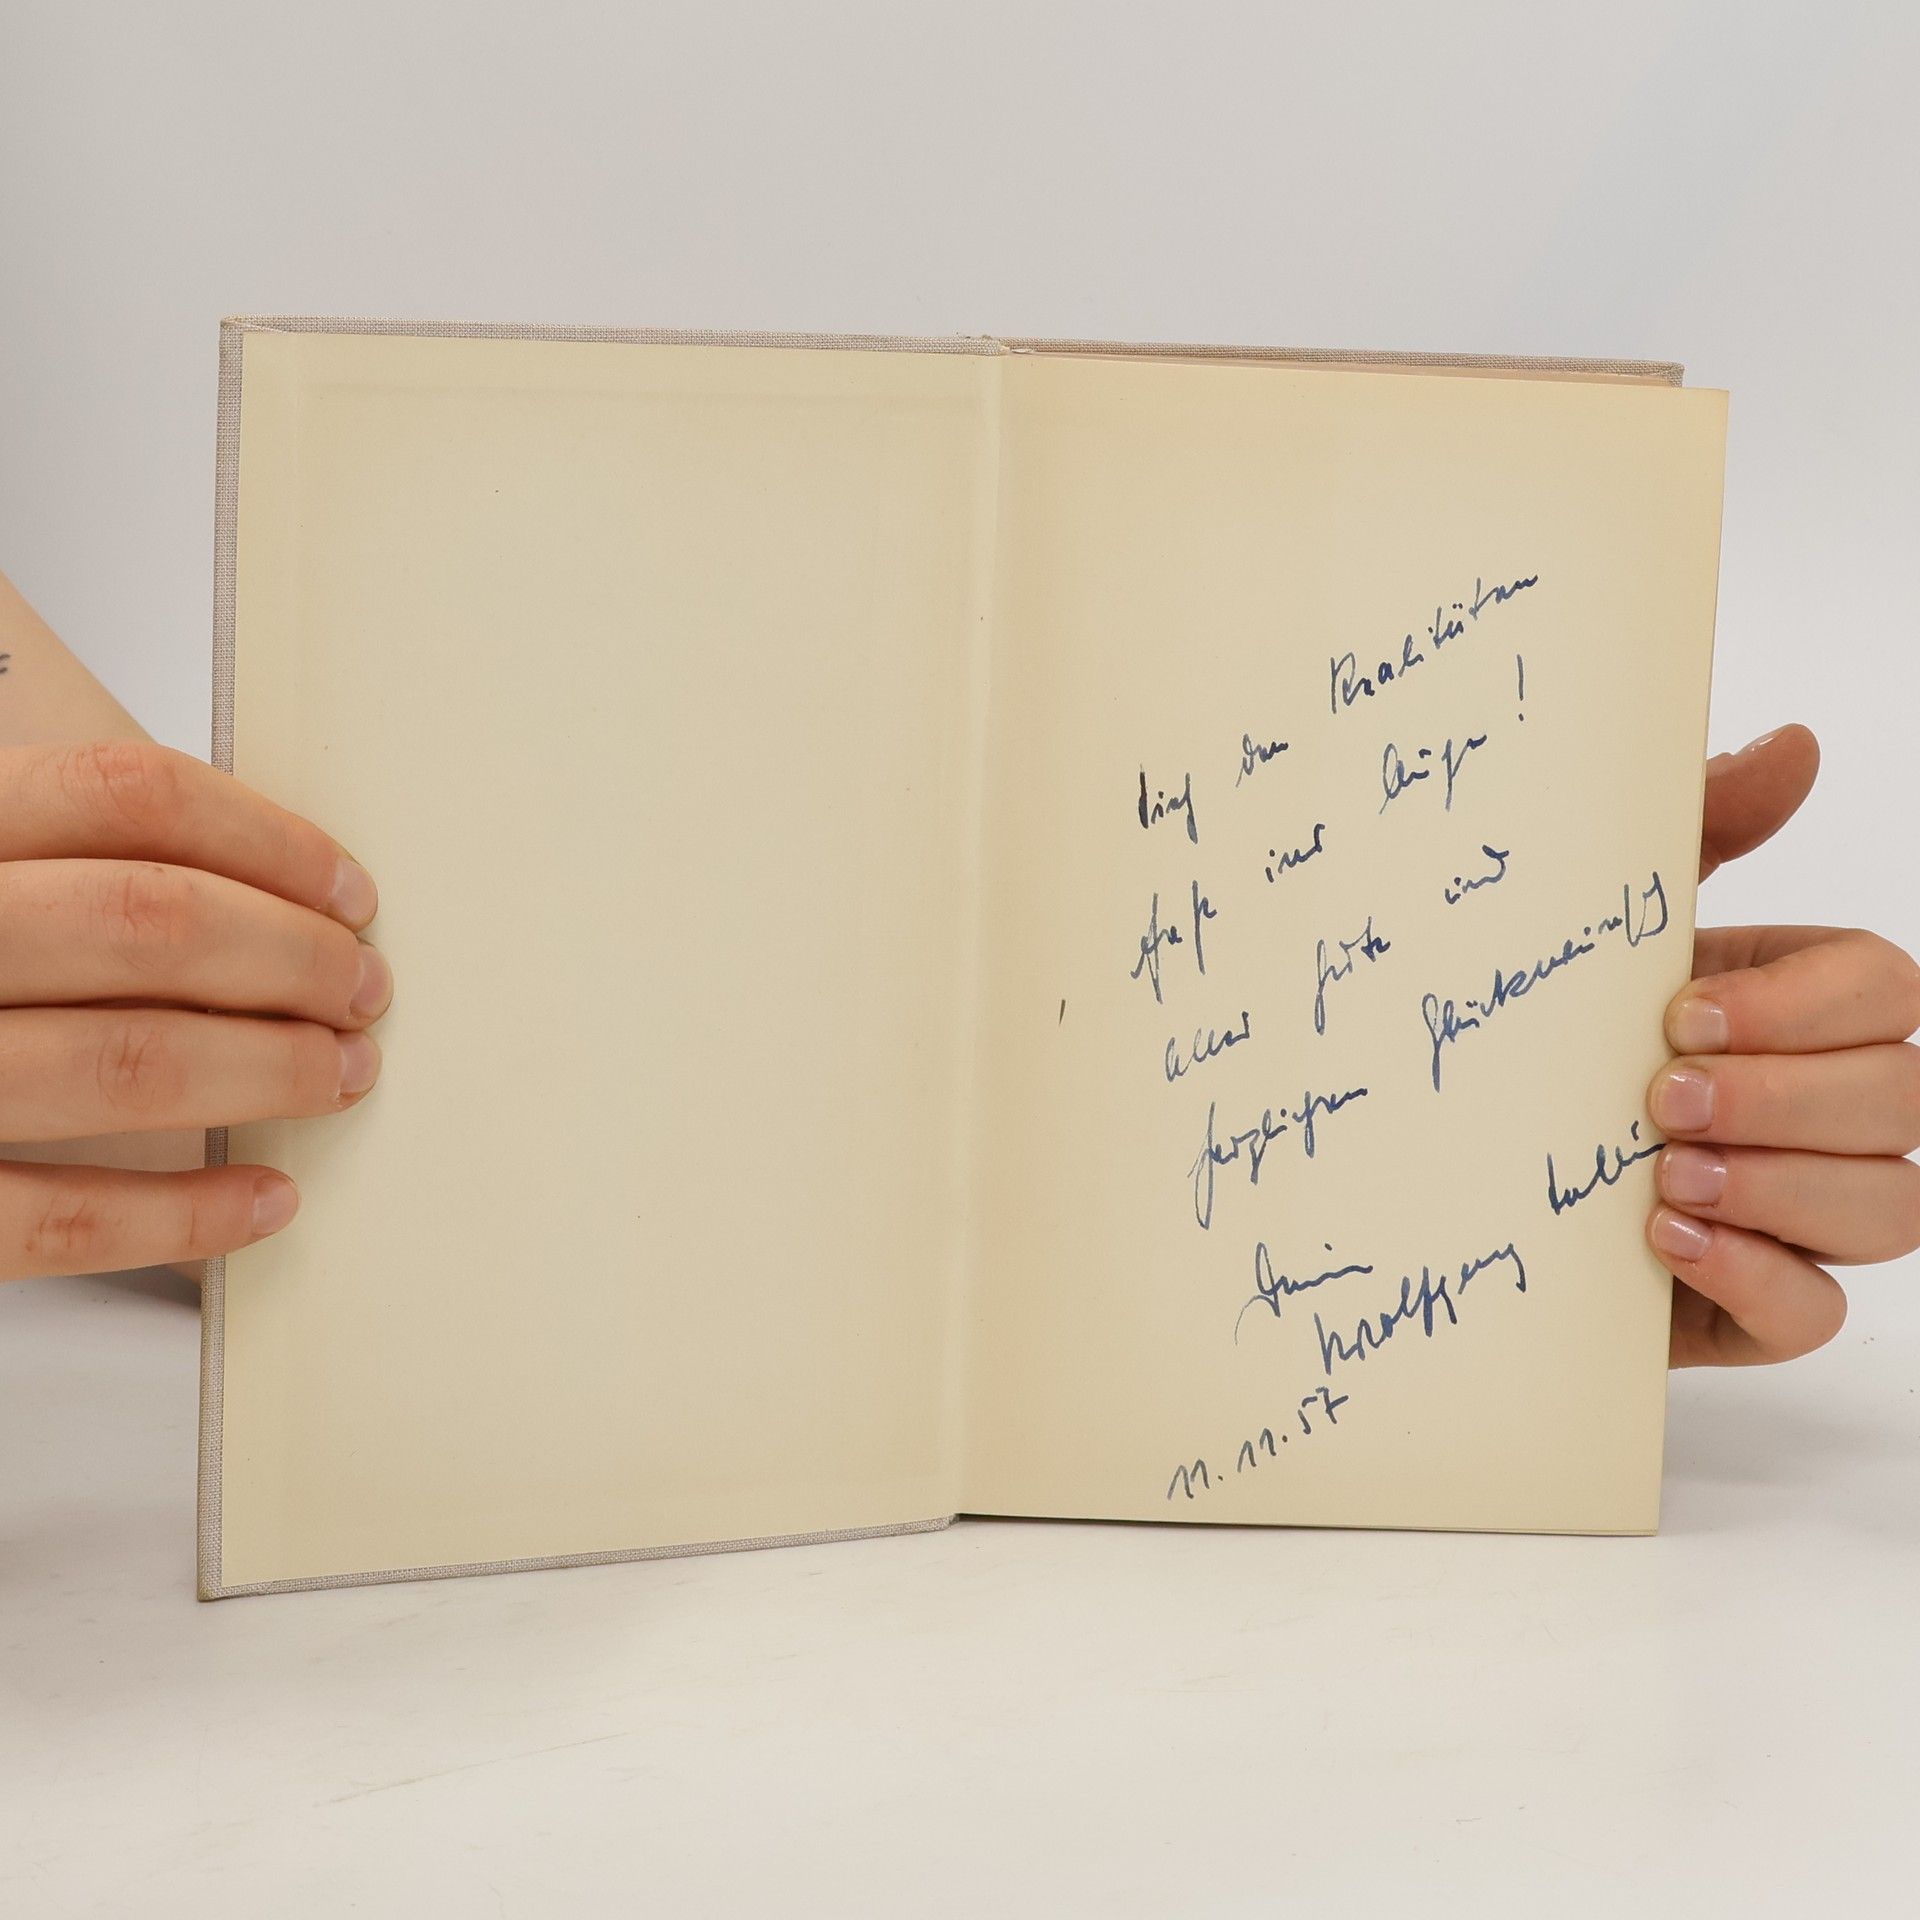 Sieh den Realitäten
fest ins Auge!
Alles Gute und
herzlichen Glückwunsch
Dein
Wolfgang
11.11.57